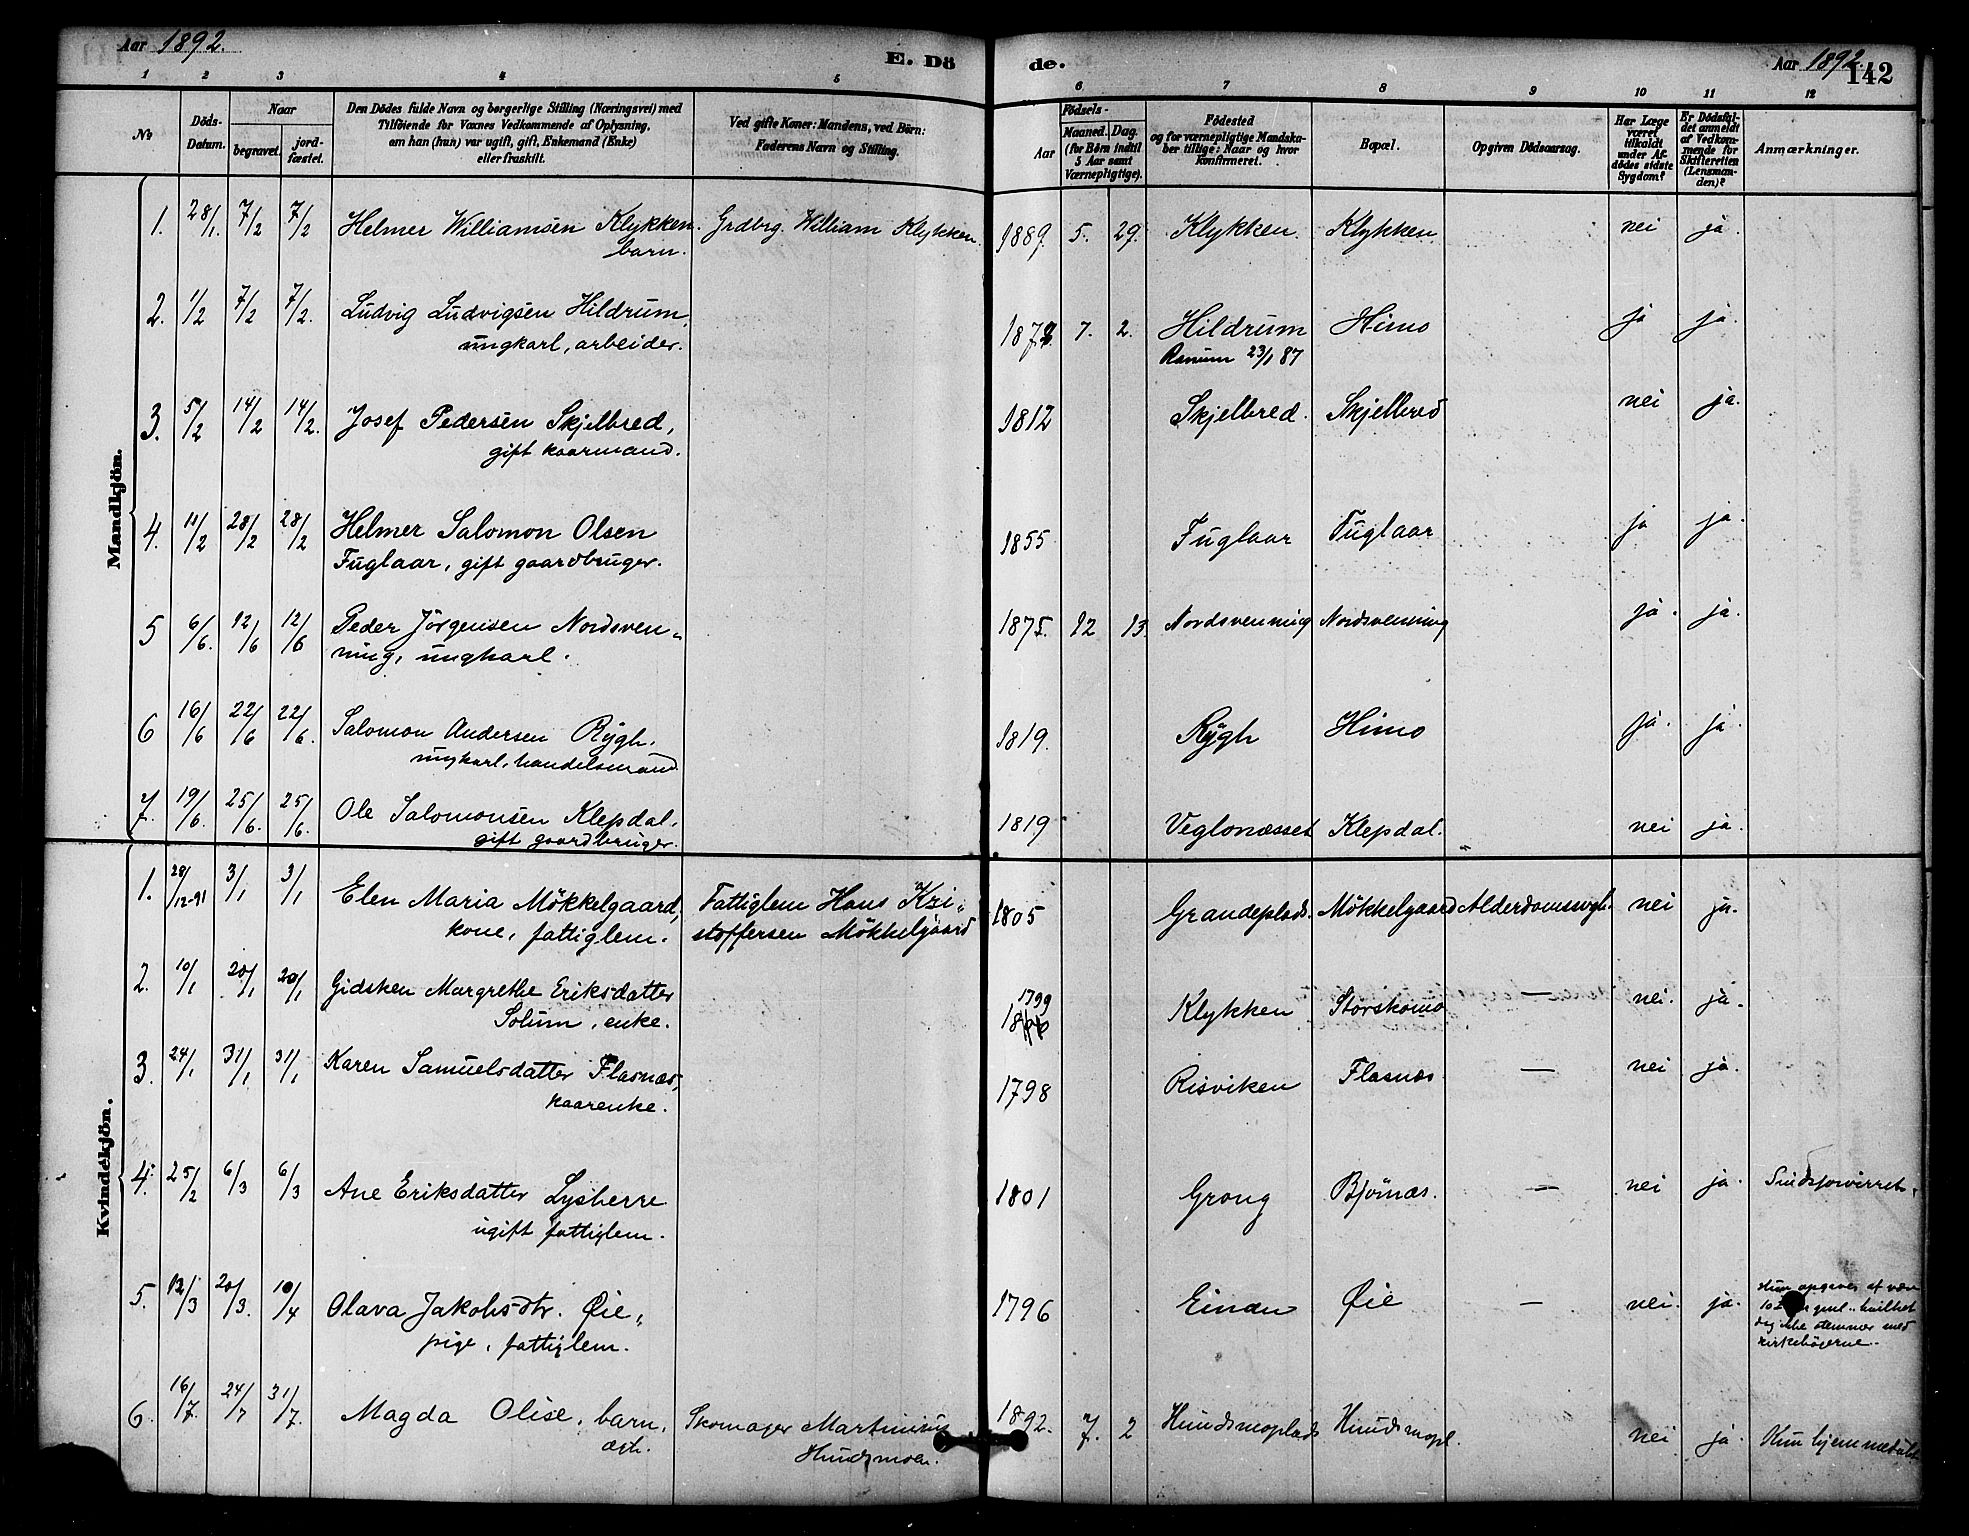 Aar 1892.
E. Dö de.
Aar 1892.
142
1 2 3 4 5 6 7 8 9 10 11 12
No
Döds-Datum.
Naar
begravet.
jord-fæstet.
Den Dödes fulde Navn og borgerlige Stilling (Næringsvei) med
Tilföiende for Voxnes Vedkommende af Oplysning,
om han (hun) var ugift, gift, Enkemand (Enke)
eller fraskilt.
Ved gifte Koner: Mandens, ved Börn:
Faderens Navn og Stilling.
Födsels-
Aar
Maaned. Dag.
(for Börn indtil
5 Aar samt
Værnepligtige).
Födested
og for værnepligtige Mandska-
ber tillige: Naar og hvor
konfirmeret.
Bopæl.
Opgiven Dödsaarsag.
Har Læge
været
tilkaldt
under Af-
dödes sidste
Sygdom?
Er Dödsfal-
det anmeldt
af Vedkom-
mende for
Skifteretten
(Lensman-
den)?
Anmærkninger.
Mandkjön.
1. 28/1. 7/2 7/2 Helmer Williamsen Klykken. Grdbrg. William Klykken. 1889. 5. 29. Klykken. Klykken. nei ja.
barn.
2. 1/2 7/2 7/2. Ludvig Ludvigsen Hildrum, 7. 2. Hildrum Himo ja ja.
ungkarl, arbeider. Ranum 23/1 87
3. 5/2 14/2 14/2. Josef Pedersen Skjelbred, 1812 Skjelbred. Skjelbred nei ja.
gift kaarmand.
4. 11/2 28/2 28/2 Helmer Salomon Olsen 1855 Fuglaar Fuglaar ja ja.
Fuglaar, gift gaardbruger.
5 6/6. 12/6 12/6 Peder Jörgensen Nordsven- 1875. 12 13 Nordsvenning Nordsvenning ja. ja.
ning, ungkarl.
6 16/6 22/6 22/6. Salomon Andersen Rygh, 1819. Rygh Himo ja. ja.
ungkarl, handelsmand
7. 19/6. 25/6. 25/6. Ole Salomonsen Klepdal, 1819 Veglonæsset Klepdal. nei ja.
gift gaardbruger.
Kvindekjön.
1. 28/12-91 3/1 3/1 Elen Maria Mökkelgaard, Fattiglem Hans Kri- 1805 Grandeplads. Mökkelgaard Alderdomssvgh. nei ja.
kone, fattiglem. stoffersen Mökkelgaard
2. 10/1 20/1 20/1 Gidsken Margrethe Eriksdatter 1799 Klykken Storskomo — nei. ja.
Solum, enke.
3. 24/1 31/1 31/1 Karen Samuelsdatter Flasnæs, 1798 Risviken Flasnæs. — nei ja.
kaarenke.
4. 25/2 6/3 6/3 Ane Eriksdatter Lysberre 1801 Grong Björnæs. — nei ja. Sindsforvirret.
ugift fattiglem.
5. 12/3 20/3. 10/4 Olava Jakobsdtr. Øie, 1796 Øie — nei. ja. Hun opgives at være
pige, fattiglem. gml., hvilket
ikke stemmer med
kirkebøgerne.
6. 16/7. 24/7 31/7. Magda Olise, barn, Skomager Martinius 1892. 7. 2 Hundsmoplads Hundsmopl. nei ja. Hun hjemmedöbt
ægt. Hundsmoen.